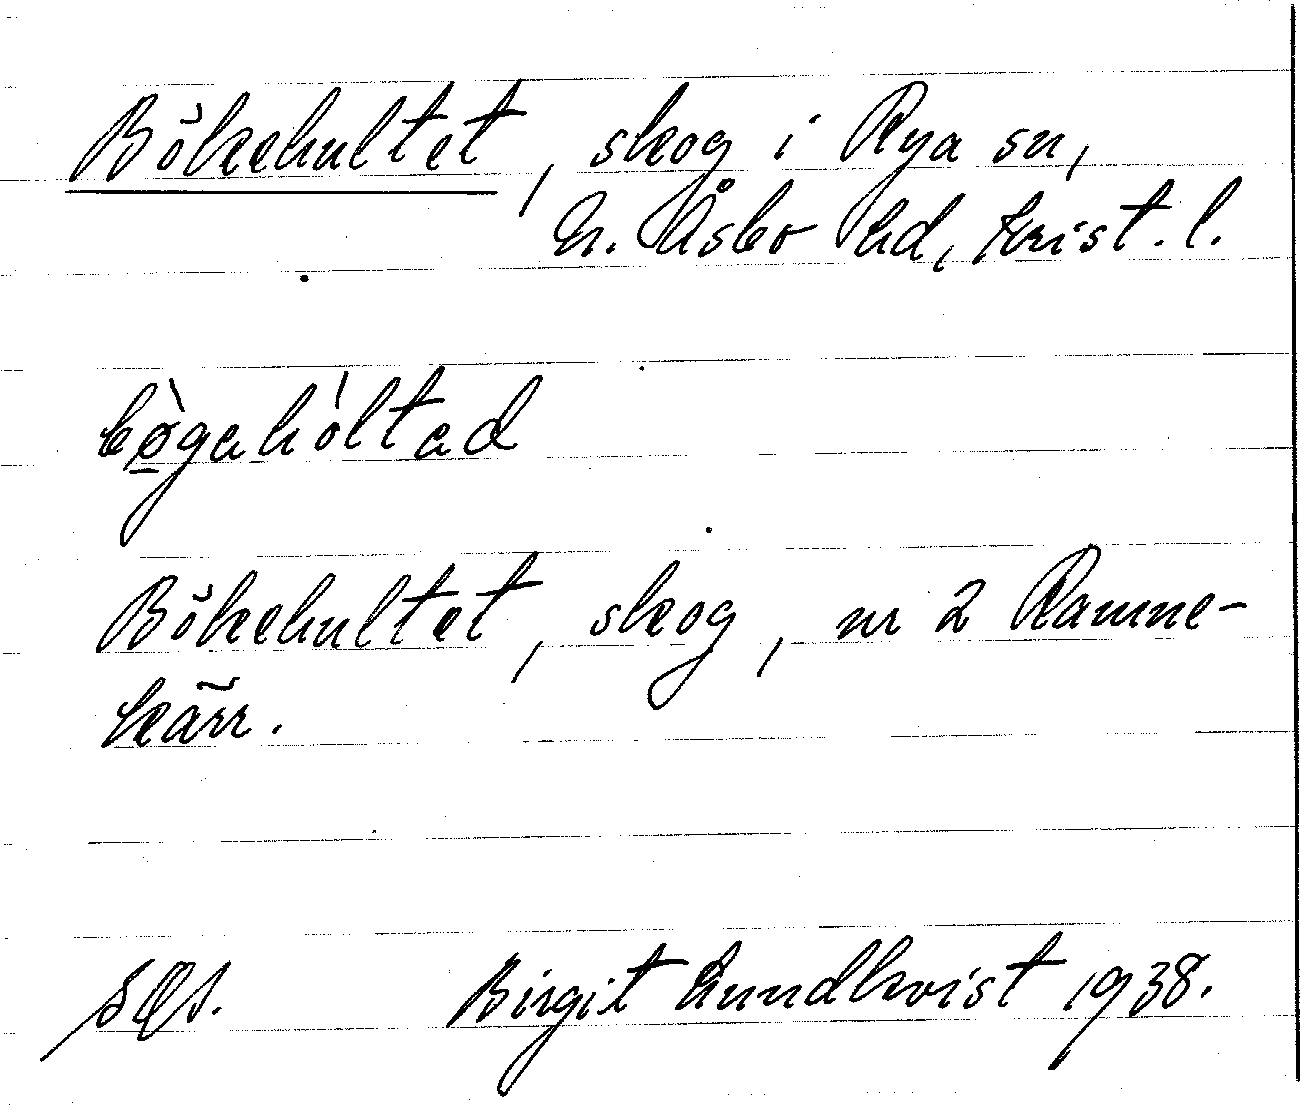 Bökehultet, skog i Rya sn,
N. Åsbo hd, Krist. l.
bø̀gahóltad
Bökehultet, skog, nr 2 Ramne-
kärr.
Birgit Lundkvist 1938.